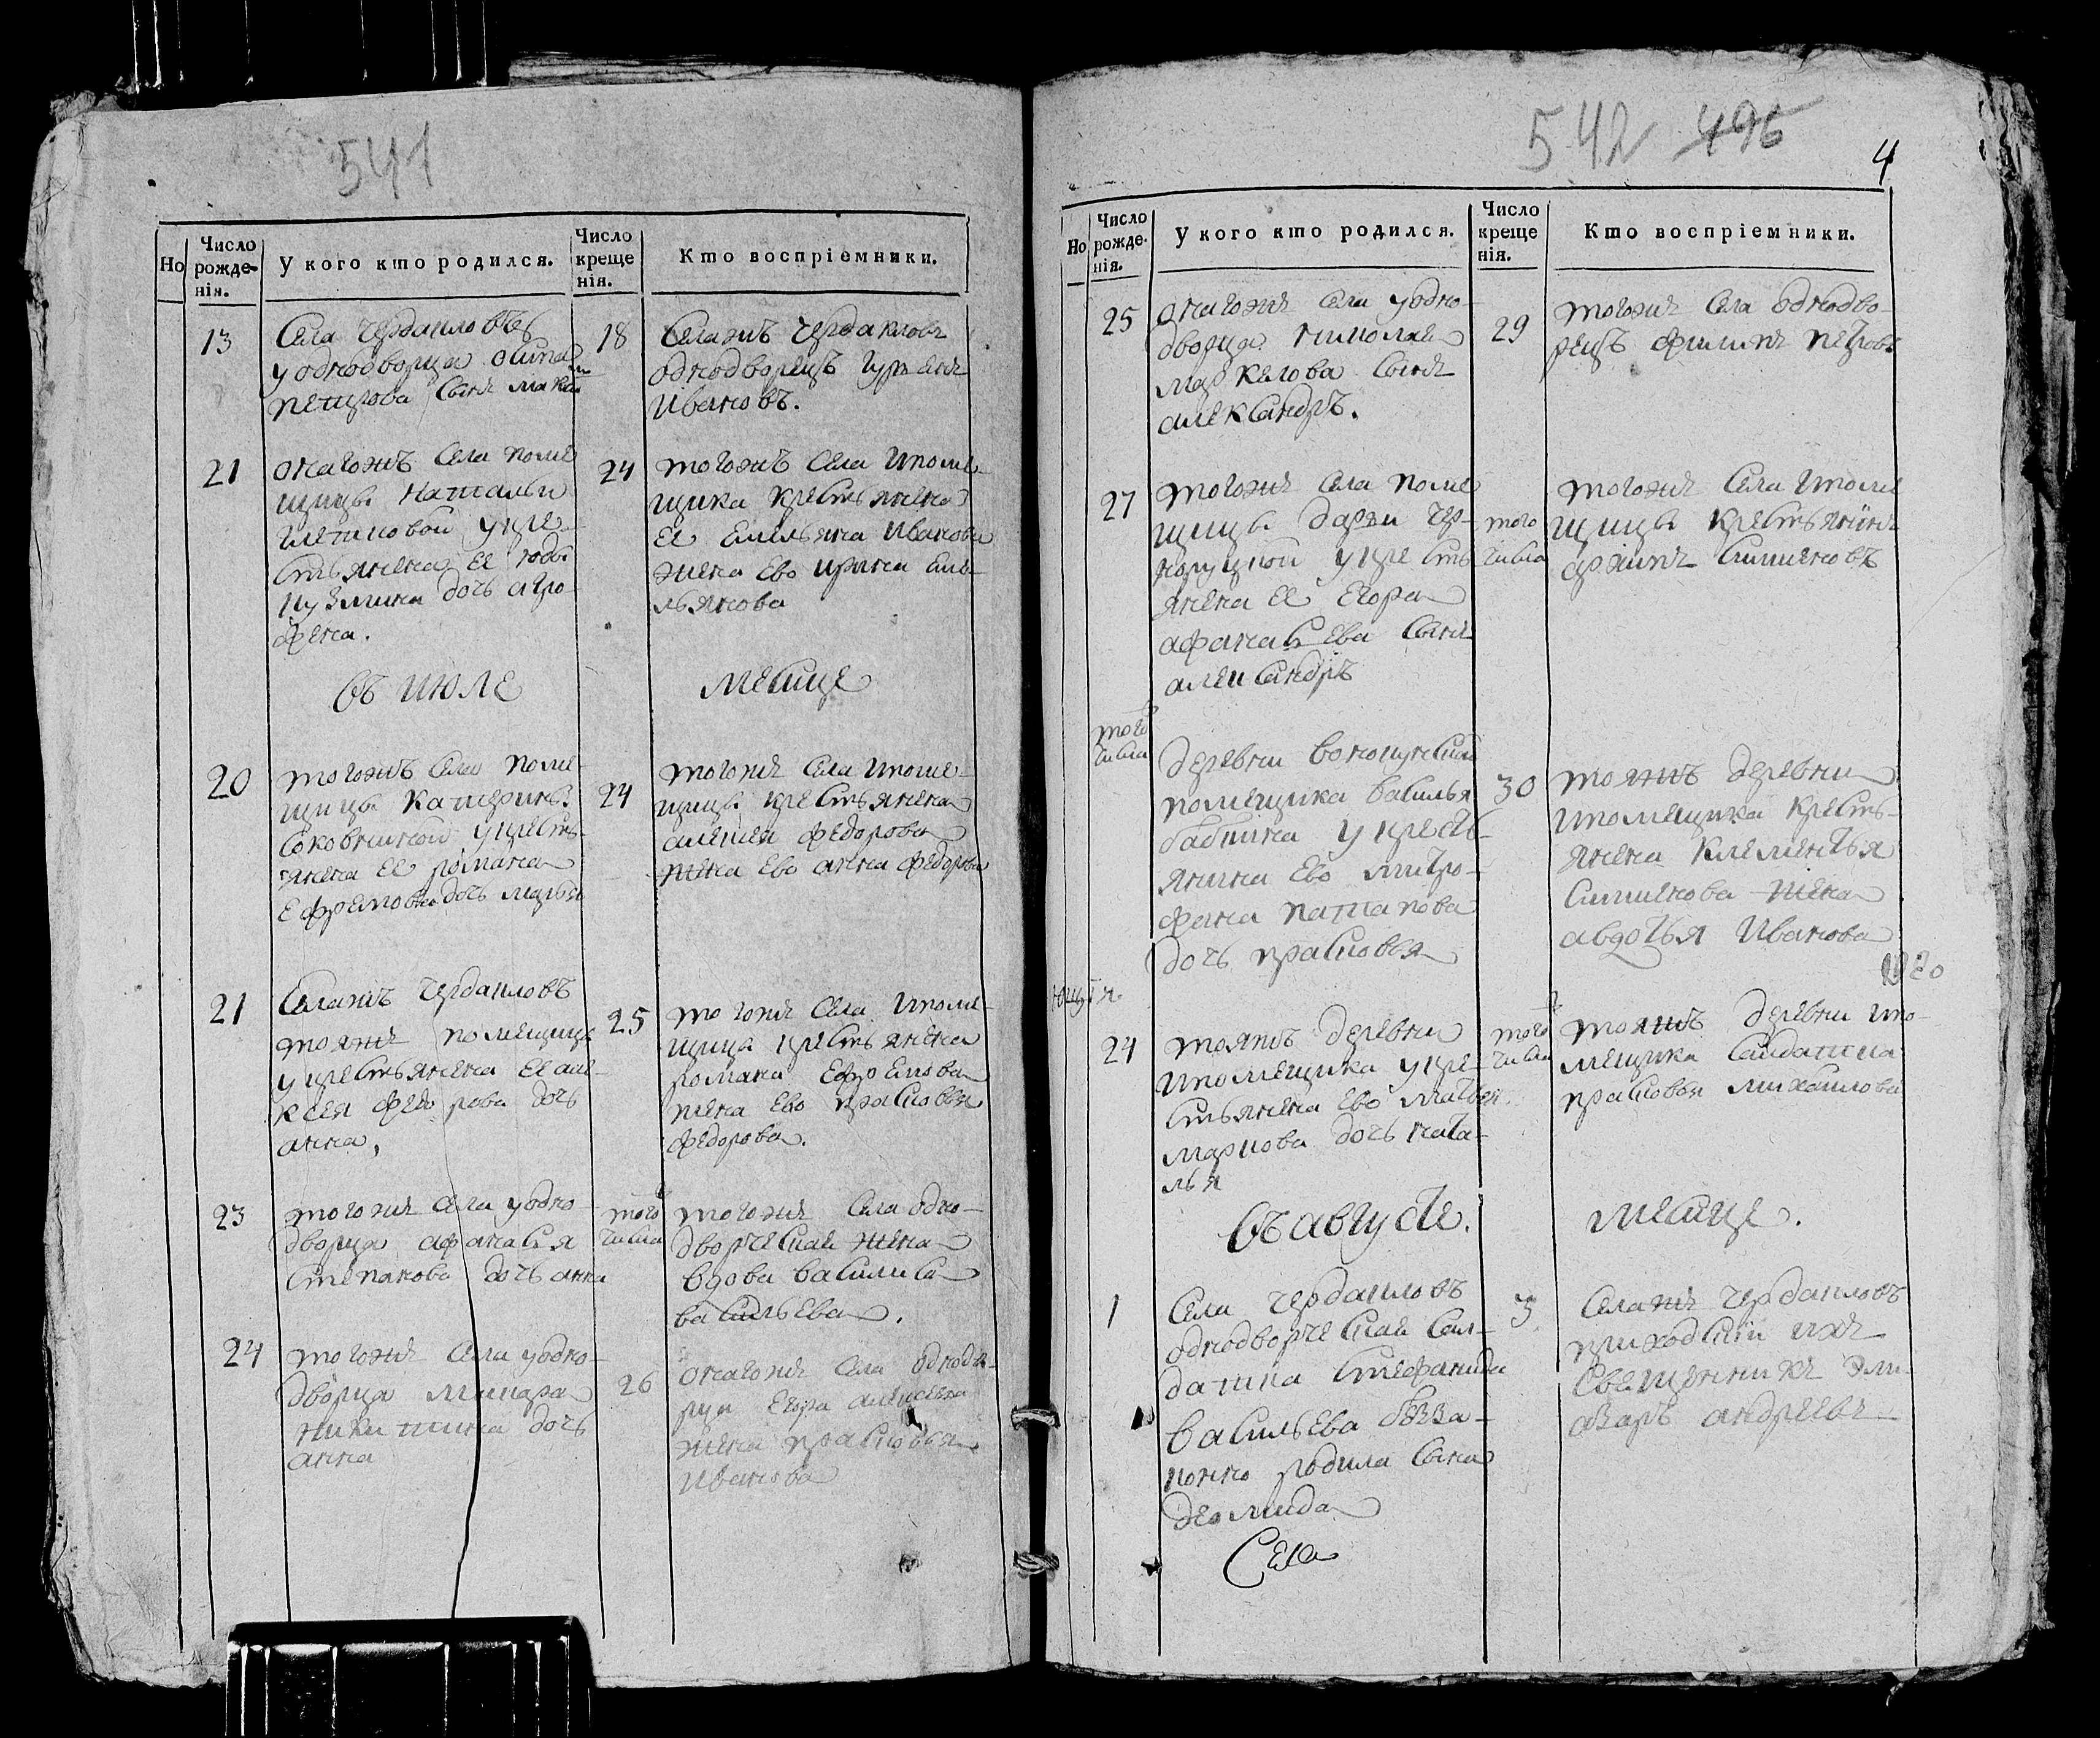 541
Но
Число рожде-нія.
У кого кто родился.
Число креще нія.
Кто воспріемники.
13
Села Чердаклов
у однодворца Осипа
петрова сынъ
18
Селажъ Чердаклов
однодворецъ
Ивановъ.
21
онагожъ села поме
щицы Натальи
у кре
стьянина ее
дочь агро
фена.
24
тогожъ села ипоме
щика крестьянина
ее Емельяна Иванова
жена ево ирина Еме
льянова
Въ июле
месице
20
тогожъ села поме
щицы Катерины
у кресть
янина ее романа
Ефремова дочь марья
24
тогожъ села ипоме
щицы крестьянина
алексея федорова
жена ево анна федорова
21
Селажъ Чердакловъ
тояжъ помещицы
у крестьянина ее але
ксея федорова дочь
анна,
25
тогожъ села ипоме
щицы крестьянина
романа Ефремова
жена ево прасковья
федорова.
23
тогожъ села у одно
дворца афанасья
степанова дочь анна
того числа
тогожъ села одно
дворческая жена
вдова василиса
васильева.
24
тогожъ села у одно
дворца макара
никитина дочь
анна
26
онагожъ села однодво
рца Егора алексеева
жена прасковья
Иванова
542 496
4
Но
Число рожде-нія.
У кого кто родился.
Число креще нія.
Кто воспріемники.
25
онагожъ села у одно
дворца николая
маркелова сынъ
александръ.
29
тогожъ села однодво
рецъ филипъ петровъ
27
тогожъ села поме
щицы дарьи чер
у кресть
янина ее Егора
афанасьева сынъ
александръ
того числа
тогожъ села ипоме
щицы крестьянинъ
симионовъ
того числа
деревни
помещика василья
бабкина у кресть
янина ево митро
фана патапова
дочь прасковья
30
тояжъ деревни
ипомещика кресть
янина клементья
симионова жена
авдотья Иванова
24
тояжъ деревни
ипомещика у кре
стьянина ево матвея
маркова дочь ната
лья
того числа
тояжъ деревни ипо
мещика салдатка
прасковья михайлова
Въ августе.
месице.
1
Села Чердакловъ
однодворческая сал
датка стефанида
васильева безза
конно родила сына
деомида
3
Селажъ Чердакловъ
приходский ихъ
священникъ эли
азаръ андреевъ
Села